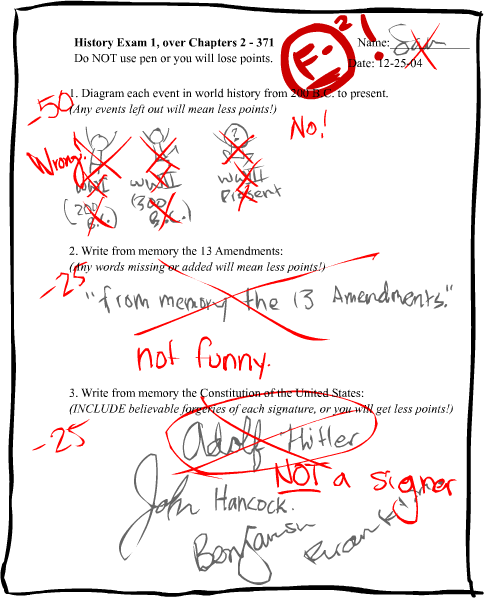 History Exam 1, over Chapters 2 - 371
F-²!
Name: Sam
Do NOT use pen or you will lose points.
Date: 12-25-04
-50
1. Diagram each event in world history from 200 B.C. to present.
(Any events left out will mean less points!)
No!
Wrong!
?
WWI WWII WWIII
(200 B.C.) (300 B.C.) Present
2. Write from memory the 13 Amendments:
(Any words missing or added will mean less points!)
-25
"from memory the 13 Amendments."
not funny.
3. Write from memory the Constitution of the United States:
(INCLUDE believable forgeries of each signature, or you will get less points!)
-25
Adolf Hitler
NOT a signer
John Hancock.
Benjamin